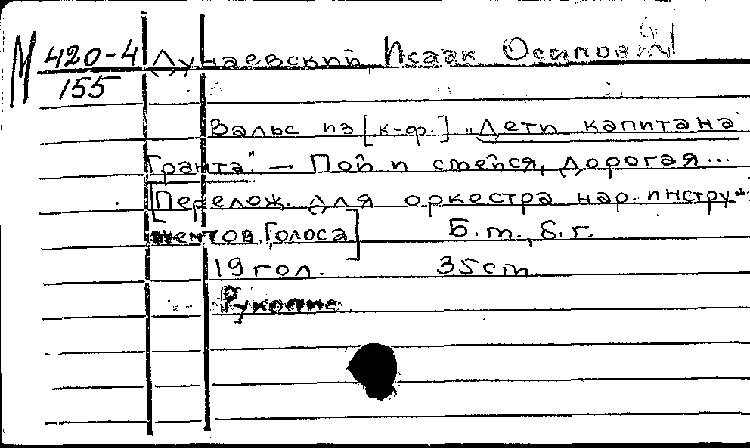 М 420-4 Дунаевский, Исаак Осипович
155
Вальс из [к-ф.] „Дети капитана
Гранта" — Пой и смейся, дорогая...
[Перелож. для оркестра нар. инстру-
ментов. Голоса] Б.м., б.г.
19 гол. 35 cm
Рукопис.